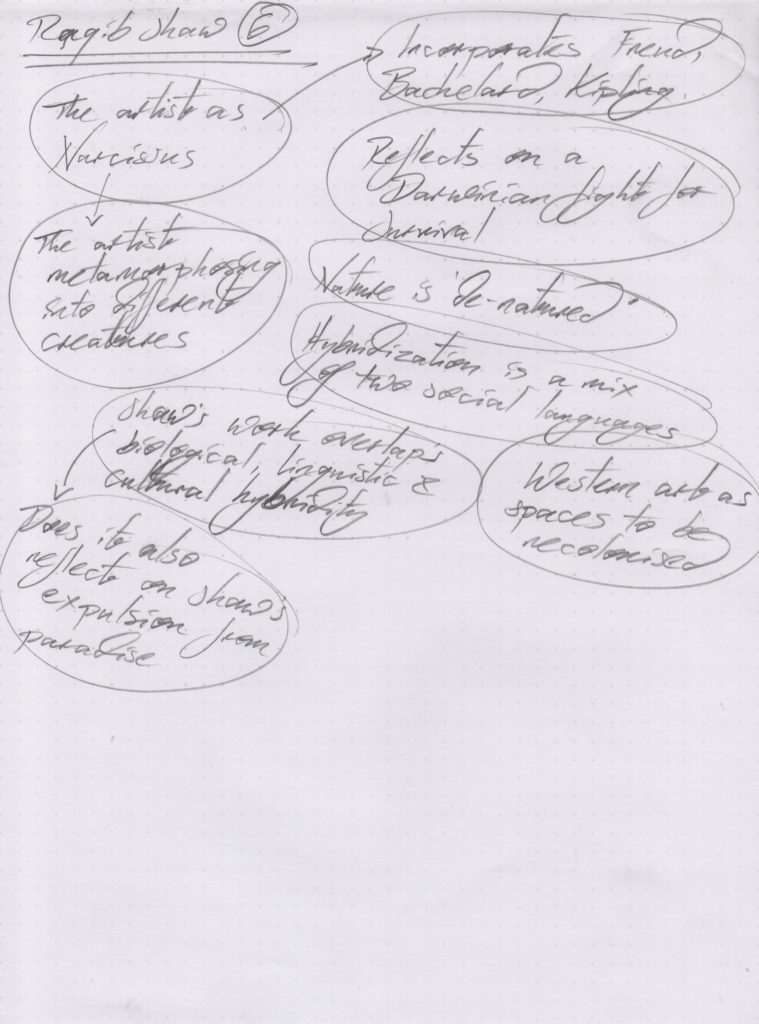 Raqib Shaw 6
The artist as
Narcissus
Incorporates Freud,
Bachelard, Kipling.
Reflects on a
Darwinian fight for
survival
The artist
metamorphosing
into different
creatures
Nature is 'de-natured'
Hybridization is a mix
of two social languages
Shaw's work overlaps
biological, linguistic &
cultural hybridity
Western art as
spaces to be
recolonised
Does it also
reflect on Shaw's
expulsion from
paradise